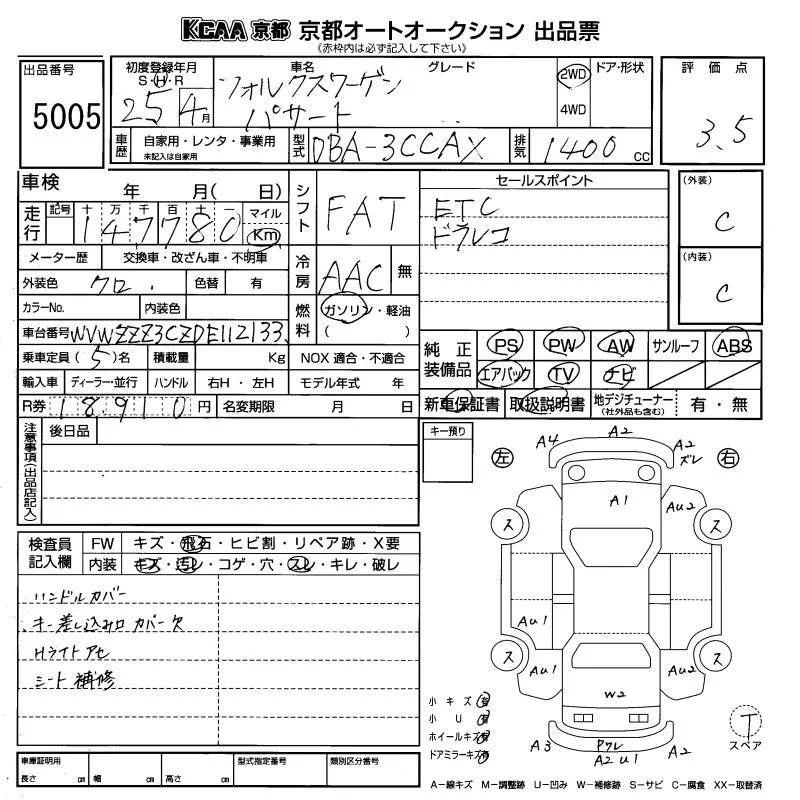 KCAA 京都 京都オートオークション 出品票
《赤枠内は必ず記入して下さい》
出品番号
5005
初度登録年月
S・H・R
25 4 月
車名
フォルクスワーゲン
パサート
グレード
2WD
4WD
ドア・形状
評価点
3.5
車歴
自家用・レンタ・事業用
未記入は自家用
型式
DBA-3CCAX
排気
1400 cc
車検 年 月( 日)
走行
記号 十 万 千 百 十 一
147780
マイル
Km
メーター歴 交換車・改ざん車・不明車
外装色 クロ 色替 有
カラーNo. 内装色
車台番号 WVWZZZ3CZDE112133
乗車定員 (5)名 積載量 Kg
輸入車 ディーラー・並行 ハンドル 右H・左H
R券 18910 円 名変期限 月 日
シフト
FAT
冷房
AAC 無
燃料
ガソリン・軽油
( )
NOX 適合・不適合
モデル年式 年
セールスポイント
ETC
ドラレコ
(外装)
C
(内装)
C
純正装備品
PS PW AW サンルーフ ABS
エアバック TV ナビ
新車保証書 取扱説明書 地デジチューナー
(社外品も含む)
有・無
注意事項(出品店記入)
後日品
キー預り
検査員記入欄
FW キズ・飛石・ヒビ割・リペア跡・X要
内装 キズ・汚レ・コゲ・穴・スレ・キレ・破レ
ハンドルカバー
キー差し込み口 カバー欠
Hライトアセ
シート補修
左
右
A4
A2
A2
ズレ
A1
Au2
ス
ス
Au1
ス
ス
Au1
Au2
W2
A3
ワレ
A2 U1
A2
小キズ 有
小U 有
ホイールキズ有
ドアミラーキズ有
T
スペア
車庫証明用
長さ cm 幅 cm 高さ cm
型式指定番号
類別区分番号
A−線キズ M−調整跡 U−凹み W−補修跡 S−サビ C−腐食 XX−取替済